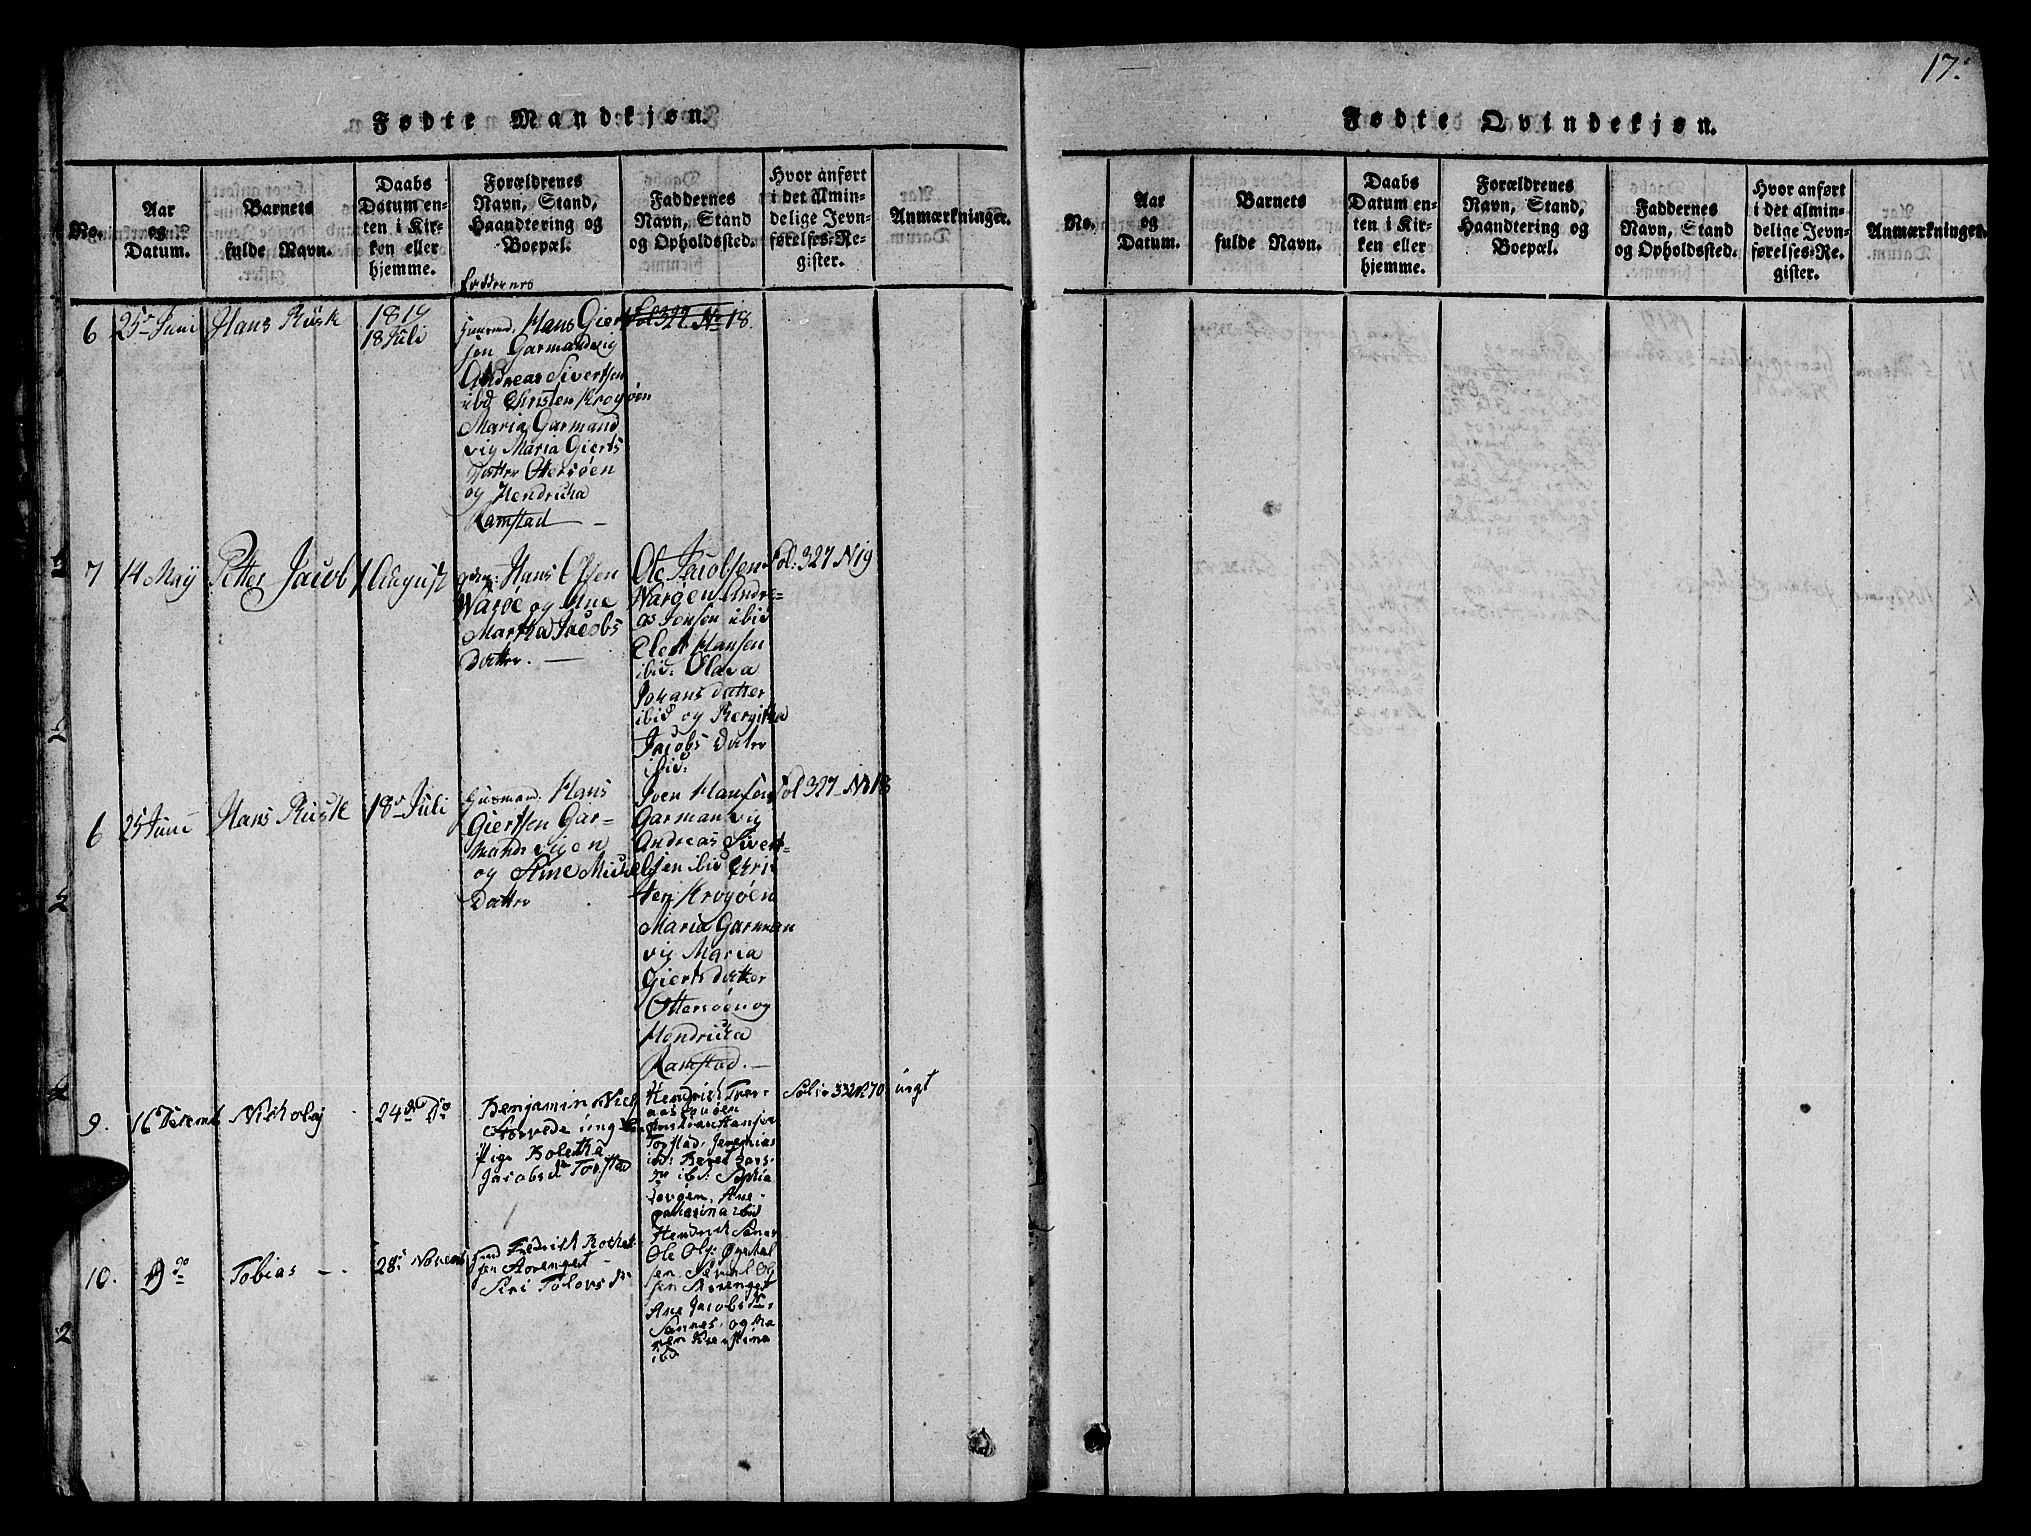 17.
Fødte Mandkjøn.
No.
Aar
og
Datum.
Barnets
fulde Navn.
Daabs
Datum en-
ten i Kir-
ken eller
hjemme.
Forældrenes
Navn, Stand,
Haandtering og
Boepæl.
Faddernes
Faddernes
Navn, Stand
og Opholdssted.
Hvor anført
i det almin-
delige Jevn-
førelses-Re-
gister.
Anmærkninger.
6
25 Juni
Hans Rusk
1819
18 Juli
Hans Giert
sen Garmandvig
Andreas Sivertsen
ibd Christen Krogøen
Maria Garmand
vig Maria Gierts
Datter Ottersøen
og Hendricka
Ramstad
Fol 327 No 18.
7
14 May
Petter Jacob
1 August
Hans Olsen
Warøe og Ane
Martha Jacobs
Datter.
Ole Jacobsen
Wargen Andre-
as Jensen ibid
Elert Hansen
ibid. Olava
Johans datter
ibid og Bergitha
Jacobs Datter
ibid.
Fol. 327 N 19
6
25 Juni
Hans Rusk
18 Juli
Husmand. Hans
Giertsen Gar-
mandsvigen
og Ane Michels
Datter
Iven Hansen
Garmanvig
Andreas Sivert-
sen ibid Chri-
sten Krogøen
Maria Garman
vig Maria
Gierts datter
Ottersøen og
Hendricka
Ramstad.
Fol 327 No 18
9.
16 Decemb
Nicholaj
24de Do
Benjamin Niels
Storvede ung
Pige Bolethe
Jacobsd Torstad
Hendrich Tver-
aas
Hansen
Torstad, Jeremias
ibd: Beret Lars-
Dr ibd: Sophia
Ane
Catharina ibid
Folio 332 N 70.
ungt
10.
Do
Tobias
28 Novemb
Fredrich Rothet-
sen Storenget
Siri Tolovs Dr
Hendrich Sanes
Ole Ols:
sen
sen Storenget
Ane Jacobs Dr
Sannes, og Ma
ren Kierstina
ibd
Fødte Qvindekjøn.
No.
Aar
og
Datum.
Barnets
fulde Navn.
Daabs
Datum en-
ten i Kir-
ken eller
hjemme.
Forældrenes
Navn, Stand,
Haandtering og
Boepæl.
Faddernes
Navn, Stand
og Opholdssted.
Hvor anført
i det almin-
delige Jevn-
førelses-Re-
gister.
Anmærkninger.